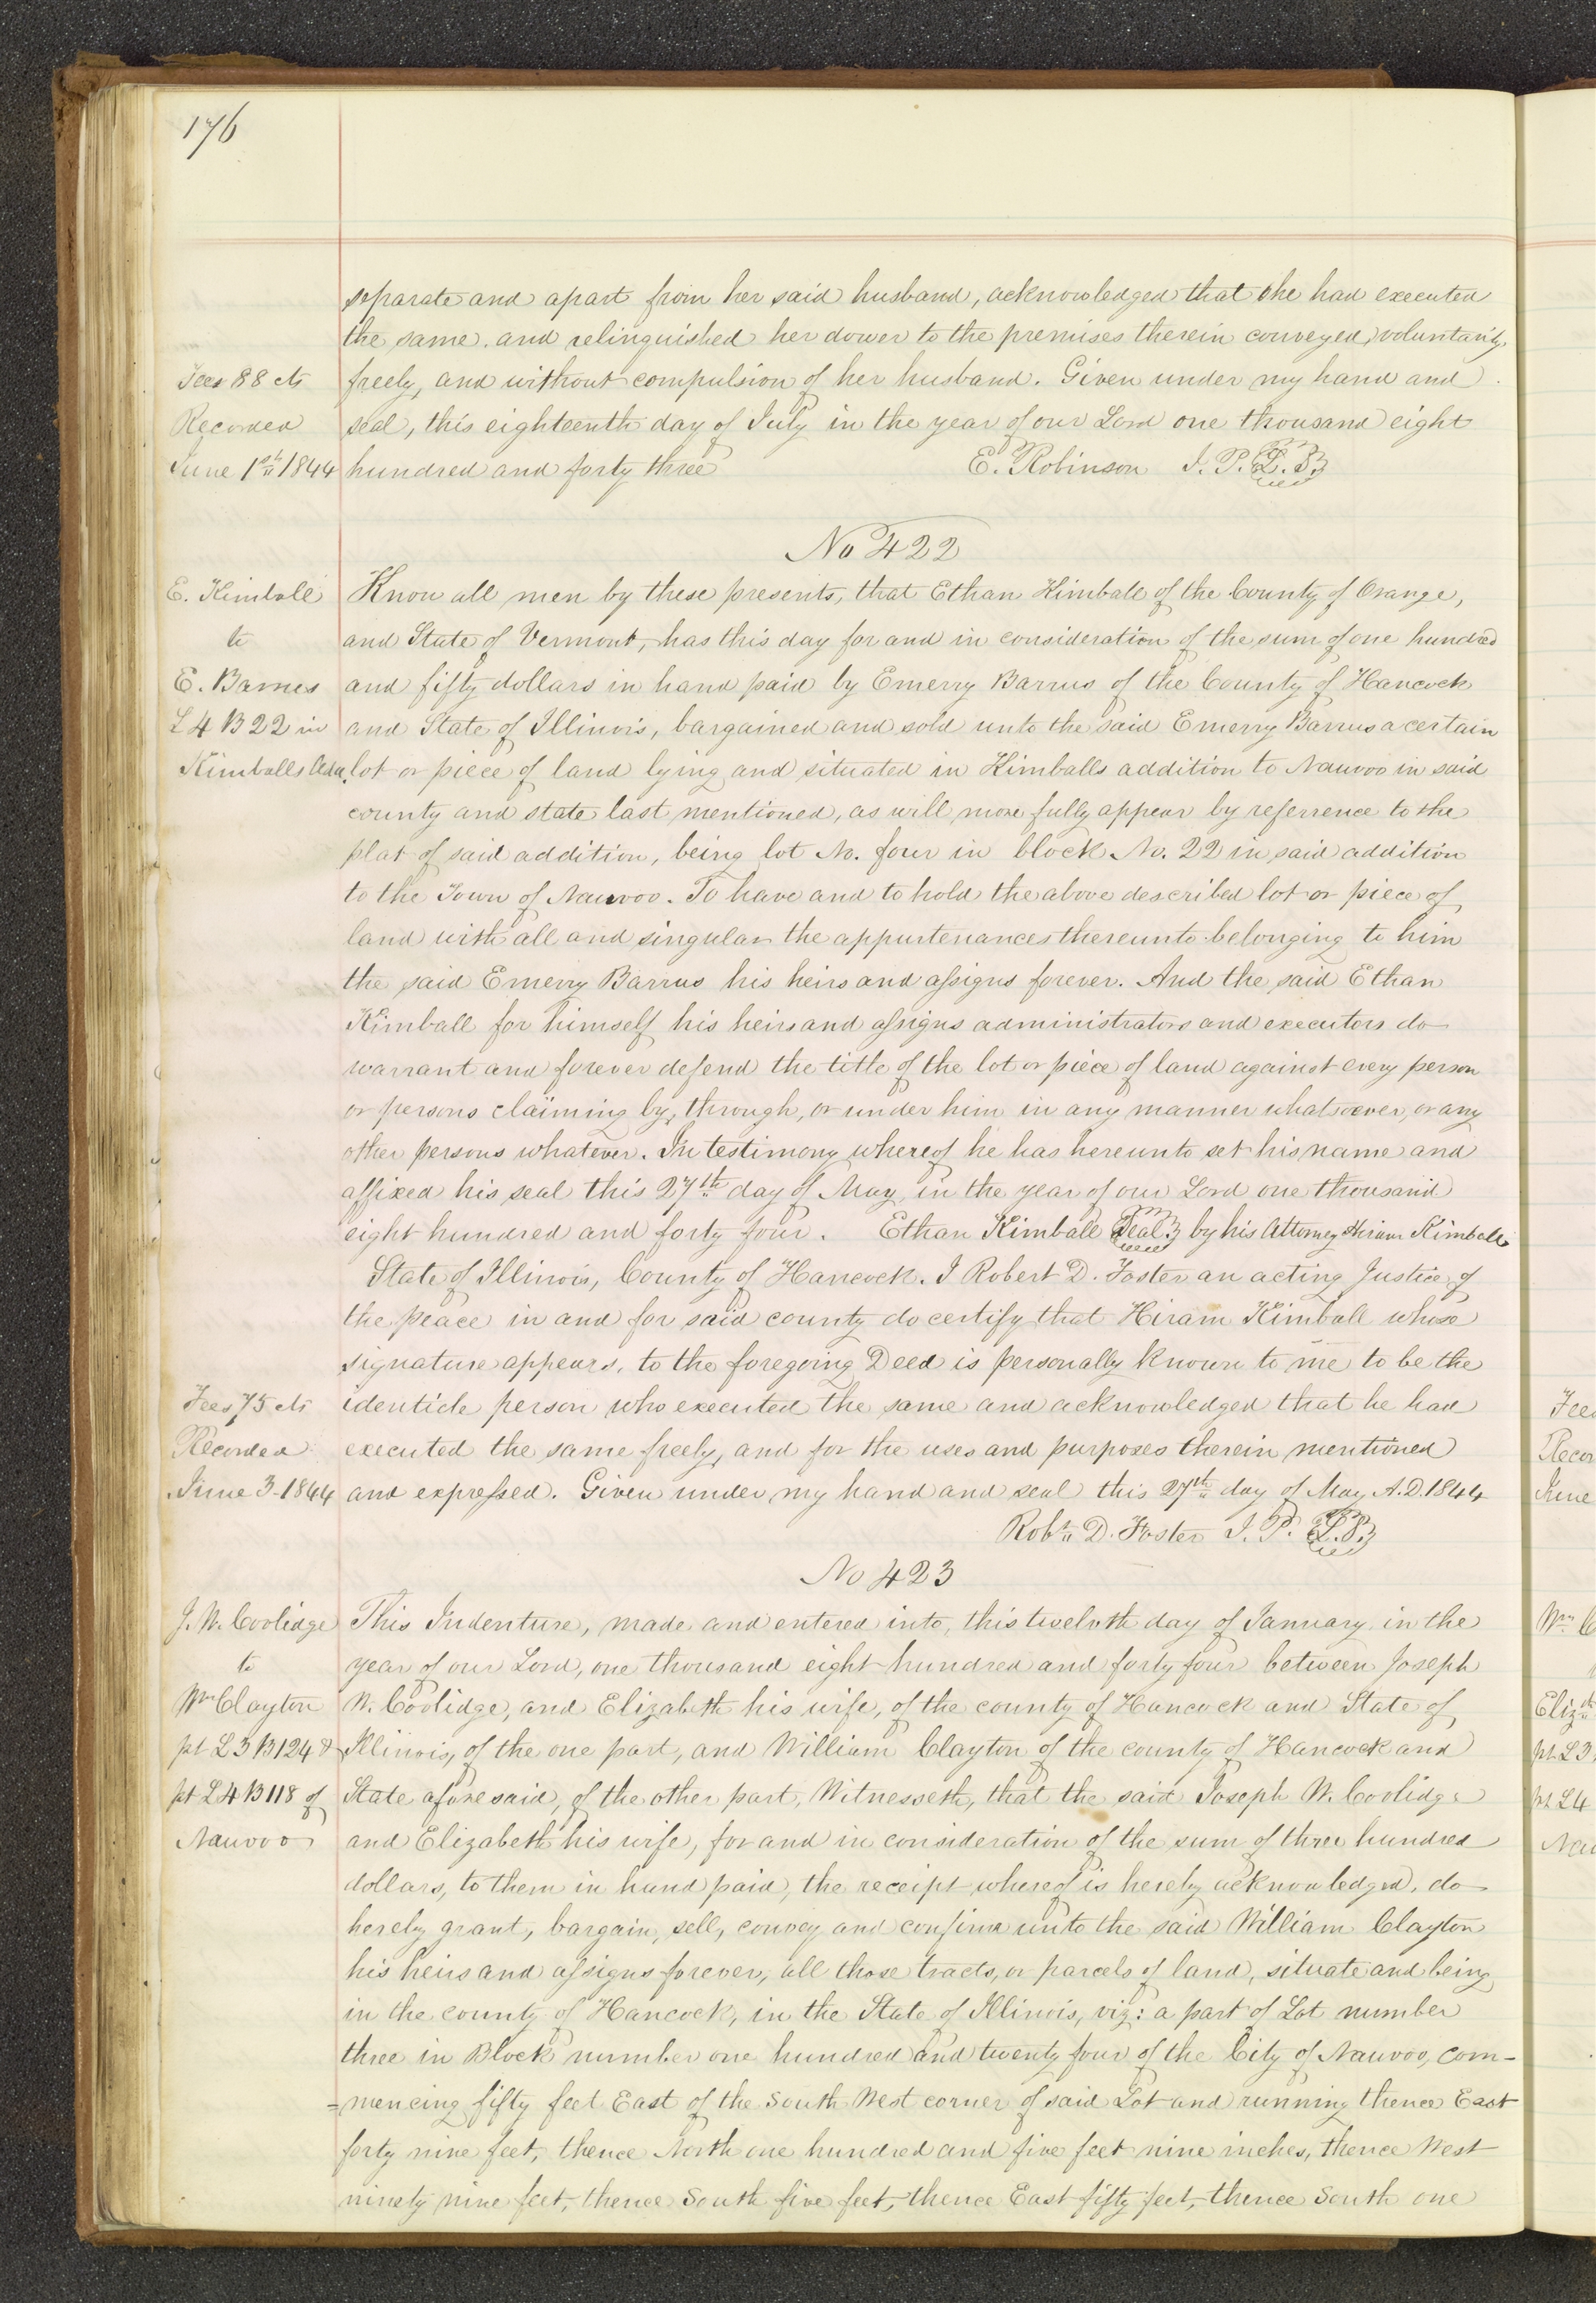 176
separate and apart from her said husband, acknowledged that she had executed
the same, and relinquished her dower to the premises therein conveyed, voluntarily,
Fees 88 cts
freely, and without compulsion of her husband. Given under my hand and
Recorded
seal, this eighteenth day of July in the year of our Lord one thousand eight
June 1st 1844
hundred and forty three E. Robinson J. P. L. S.
No 422
E. Kimball
Know all men by these presents, that Ethan Kimball of the County of Orange,
to
and State of Vermont, has this day for and in consideration of the sum of one hundred
E. Barrus
and fifty dollars in hand paid by Emerry Barrus of the County of Hancock
L 4 B 22 in
and State of Illinois, bargained and sold unto the said Emerry Barrus a certain
Kimballs Add.
lot or piece of land lying and situated in Kimballs addition to Nauvoo in said
county and state last mentioned, as will more fully appear by referrence to the
plat of said addition, being lot No. four in block No. 22 in said addition
to the Town of Nauvoo. To have and to hold the above described lot or piece of
land with all and singular the appurtenances thereunto belonging to him
the said Emerry Barrus his heirs and assigns forever. And the said Ethan
Kimball for himself his heirs and assigns administrators and executors do
warrant and forever defend the title of the lot or piece of land against every person
or persons claiming by, through, or under him in any manner whatsoever, or any
other persons whatever. In testimony whereof he has hereunto set his name and
affixed his seal this 27th day of May in the year of our Lord one thousand
eight hundred and forty four. Ethan Kimball Seal by his Attorney Hiram Kimball
State of Illinois, County of Hancock. I Robert D. Foster an acting Justice of
the peace in and for said county do certify that Hiram Kimball whose
signature appears, to the foregoing Deed is personally known to me to be the
Fees 75 cts
identicle person who executed the same and acknowledged that he had
Recorded
executed the same freely, and for the uses and purposes therein mentioned
June 3 1844
and expressed. Given under my hand and seal this 27th day of May A.D. 1844
Robt D. Foster J. P. L. S.
No 423
J. W. Coolidge
This Indenture, made and entered into, this twelvth day of January in the
to
year of our Lord, one thousand eight hundred and forty four between Joseph
Wm Clayton
W. Coolidge, and Elizabeth his wife, of the county of Hancock and State of
pt L 3 B 124 &
Illinois, of the one part, and William Clayton of the county of Hancock and
pt L 4 B 118 of
State aforesaid, of the other part, Witnesseth, that the said Joseph W. Coolidge
Nauvoo
and Elizabeth his wife, for and in consideration of the sum of three hundred
dollars, to them in hand paid, the receipt whereof is hereby acknowledged, do
hereby grant, bargain, sell, convey and confirm unto the said William Clayton
his heirs and assigns forever, all those tracts, or parcels of land, situate and being
in the county of Hancock, in the State of Illinois, viz: a part of Lot number
three in Block number one hundred and twenty four of the City of Nauvoo, com-
=mencing fifty feet East of the South West corner of said Lot and running thence East
forty nine feet, thence North one hundred and five feet nine inches, thence West
ninety nine feet, thence South five feet, thence East fifty feet, thence South one